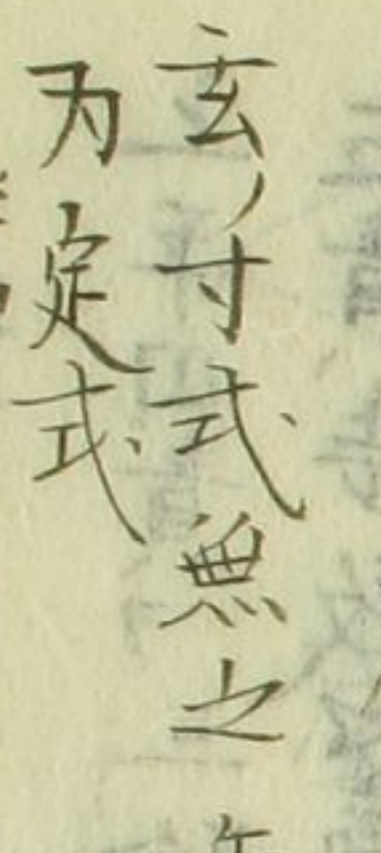 玄ノ寸式無之
為定式